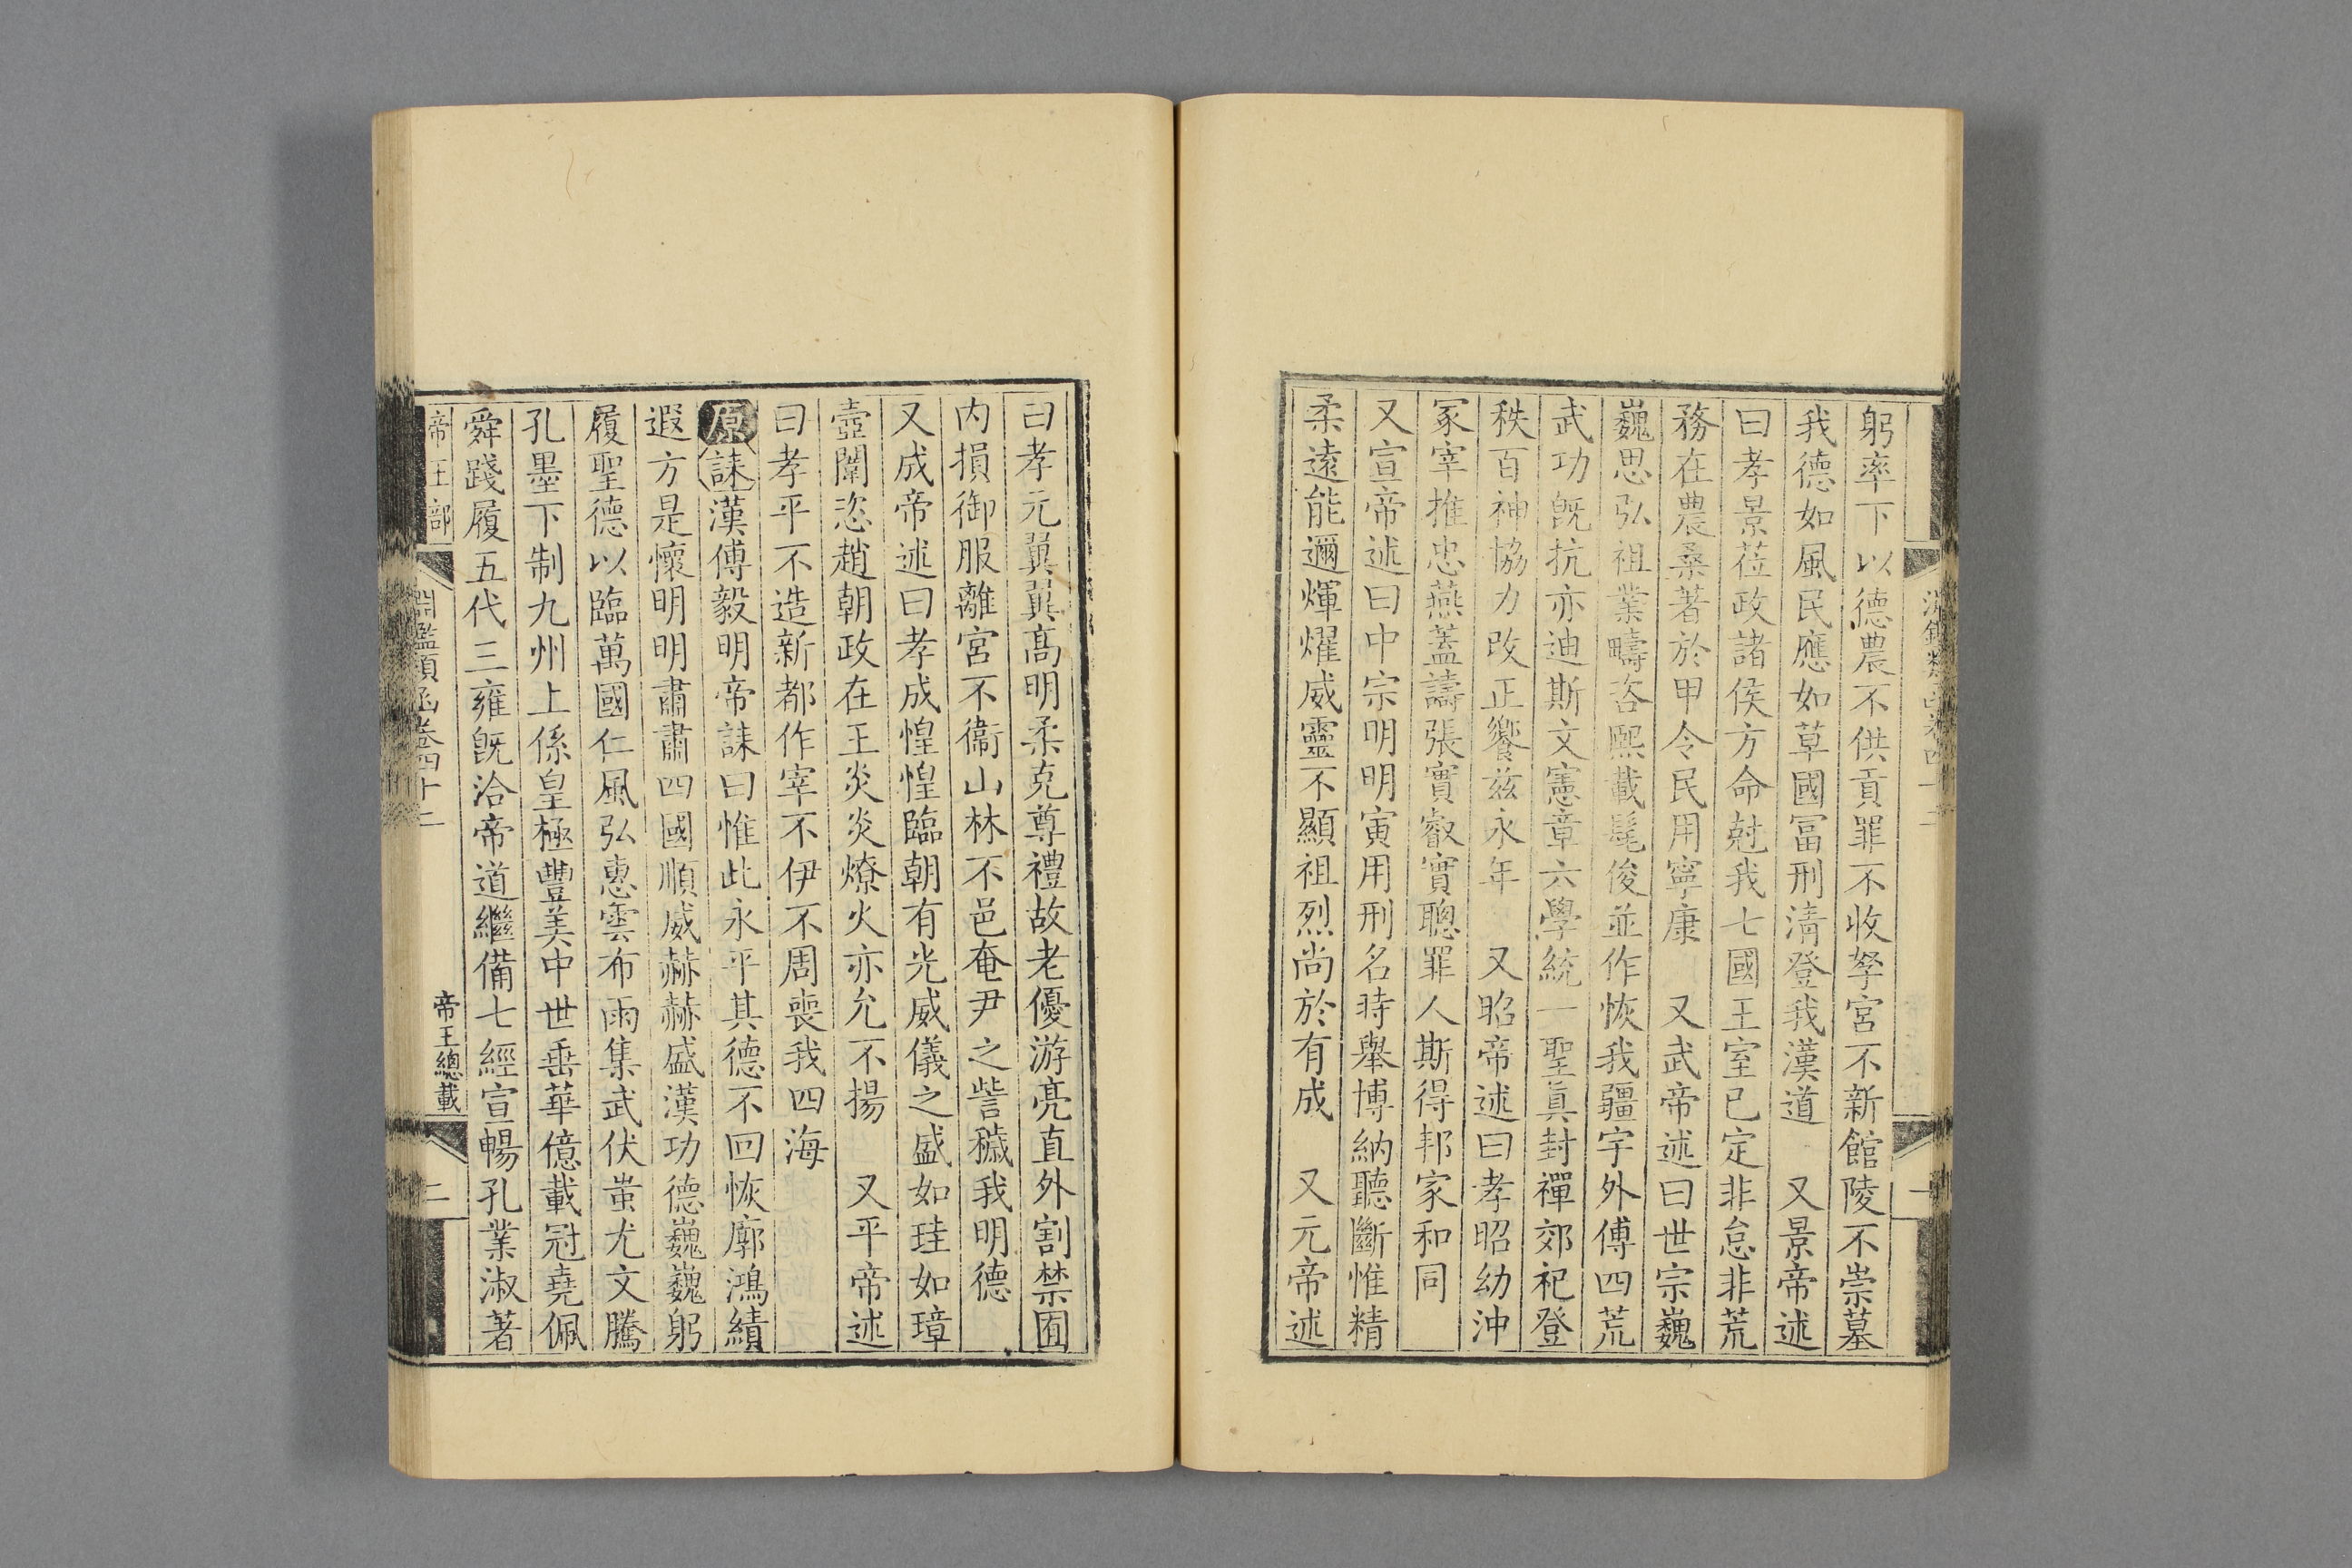 躬率下以德農不供貢罪不收孥宮不新館陵不崇墓
我德如風民應如草國冨刑清登我漢道 又景帝述
曰孝景莅政諸侯方命尅我七國王室已定非怠非荒
務在農桑著於甲令民用寧康 又武帝述曰世宗巍
巍思弘祖業疇咨熙載髦俊並作恢我疆宇外傅四荒
武功旣抗亦迪斯文憲章六學統一聖眞封禪郊祀登
秩百神協力改正饗茲永年 又昭帝述曰孝昭幼沖
冢宰推忠燕蓋譸張實叡實聰罪人斯得邦家和同
又宣帝述曰中宗明明寅用刑名時舉博納聽斷惟精
柔遠能邇煇燿威靈不顯祖烈尚於有成 又元帝述
曰孝元翼翼髙明柔克尊禮故老優游亮直外割禁囿
内損御服離宮不衞山林不邑奄尹之訾穢我明德
又成帝述曰孝成惶惶臨朝有光威儀之盛如珪如璋
壼闈恣趙朝政在王炎炎燎火亦允不揚 又平帝述
曰孝平不造新都作宰不伊不周喪我四海
原誄漢傅毅明帝誄曰惟此永平其德不回恢廓鴻績
遐方是懷明明肅肅四國順威赫赫盛漢功德巍巍躬
履聖德以臨萬國仁風弘惠雲布雨集武伏蚩尤文騰
孔墨下制九州上係皇極豐美中世垂華億載冠堯佩
舜踐履五代三雍旣洽帝道繼備七經宣暢孔業淑著
帝王部 淵鑑類函卷四十二 帝王總載 二